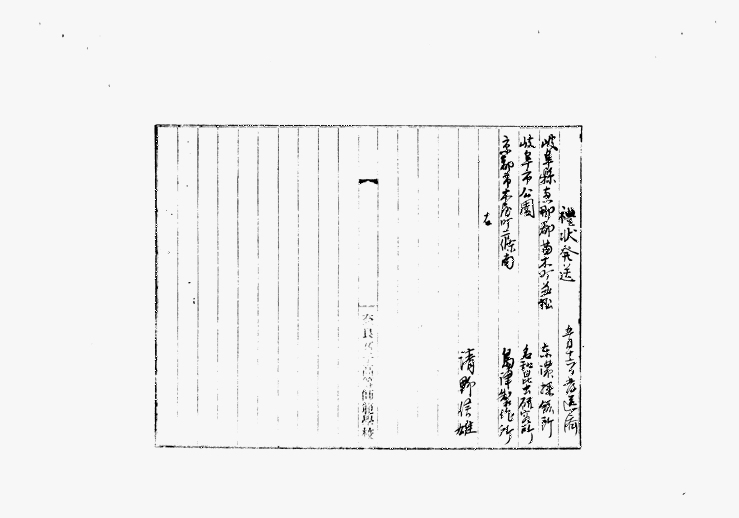 禮状発送 五月十二日発送済
岐阜縣恵那郡苗木町並松 東濃採鉱所
岐阜市公園 名和昆虫研究所
京都市木屋町二條南 島津製作所
右
清野信雄
奈良女子高等師範學校